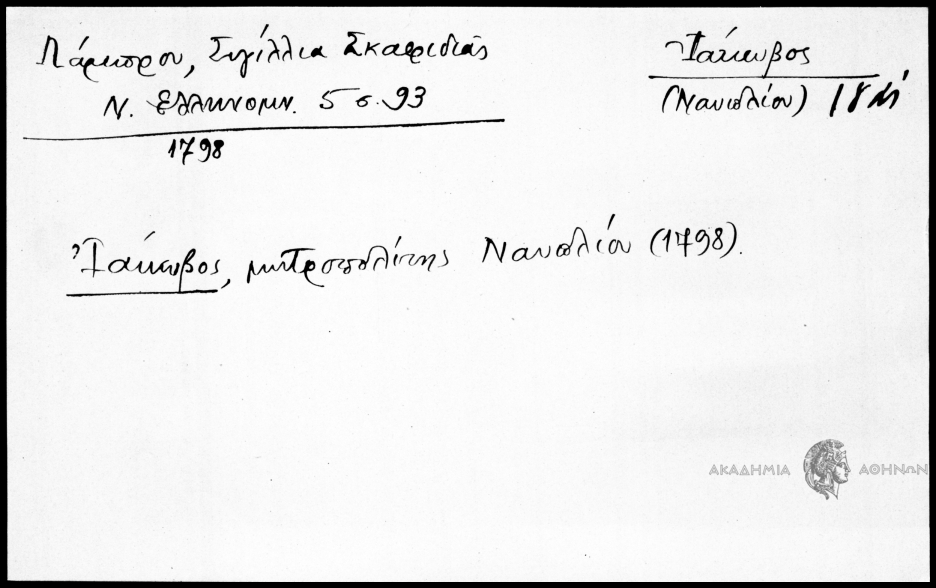 Λάμπρου, Σιγίλλια Σκαφιδιάς
Ν. Ελληνομν. 5 σ. 93
1798
Ἰάκωβος
(Ναυπλίου)
Ἰάκωβος, μητροπολίτης Ναυπλίου (1798).
ΑΚΑΔΗΜΙΑ ΑΘΗΝΩΝ